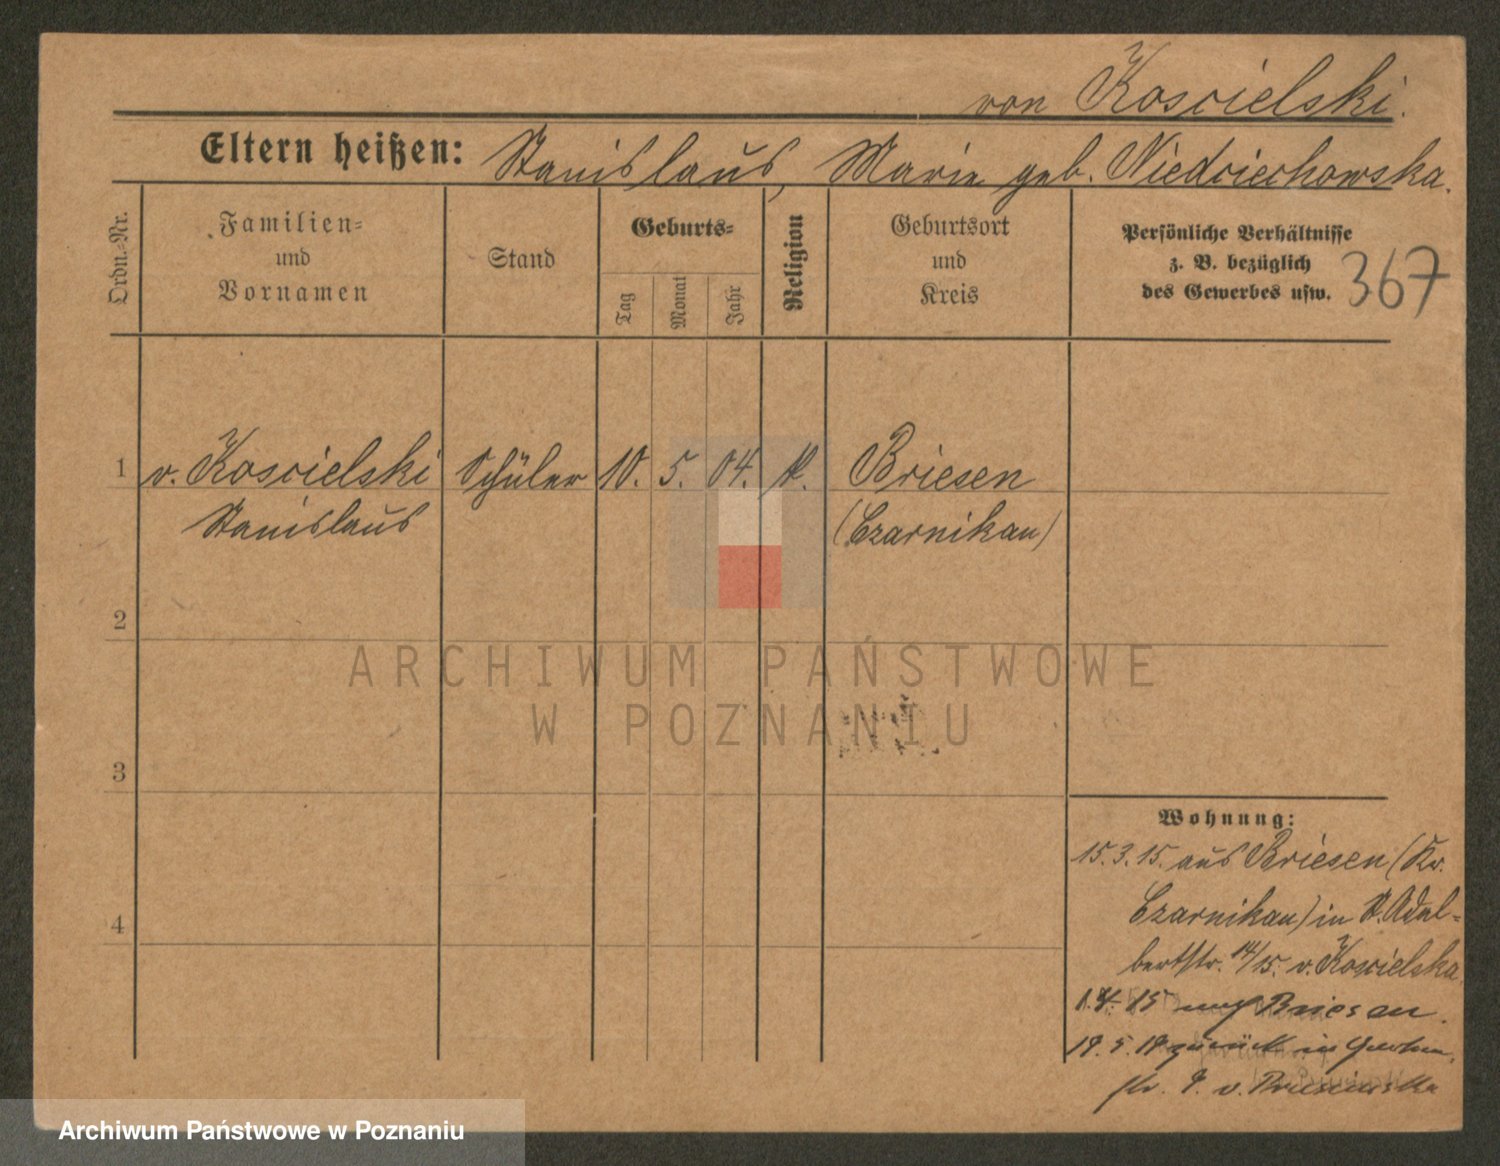 von Koscielski.
Eltern heißen: Stanislaus, Marie geb. Niedziechowska.
Ordn.-Nr.
Familien-
und
Vornamen
Stand
Geburts-
Tag
Monat
Jahr
Religion
Geburtsort
und
Kreis
Persönliche Verhältnisse
z. B. bezüglich
des Gewerbes usw.
367
1 v. Koscielski Schüler 10. 5. 04. k. Briesen
Stanislaus (Czarnikau)
2
ARCHIWUM PAŃSTWOWE
W POZNANIU
3
Wohnung:
15.3.15. aus Briesen (Kr.
4 Czarnikau) in St. Adal-
bertstr. 14/15. v. Koscielska
15 nach Briesen.
19. 5. zurück in
str. 9. v.
Archiwum Państwowe w Poznaniu